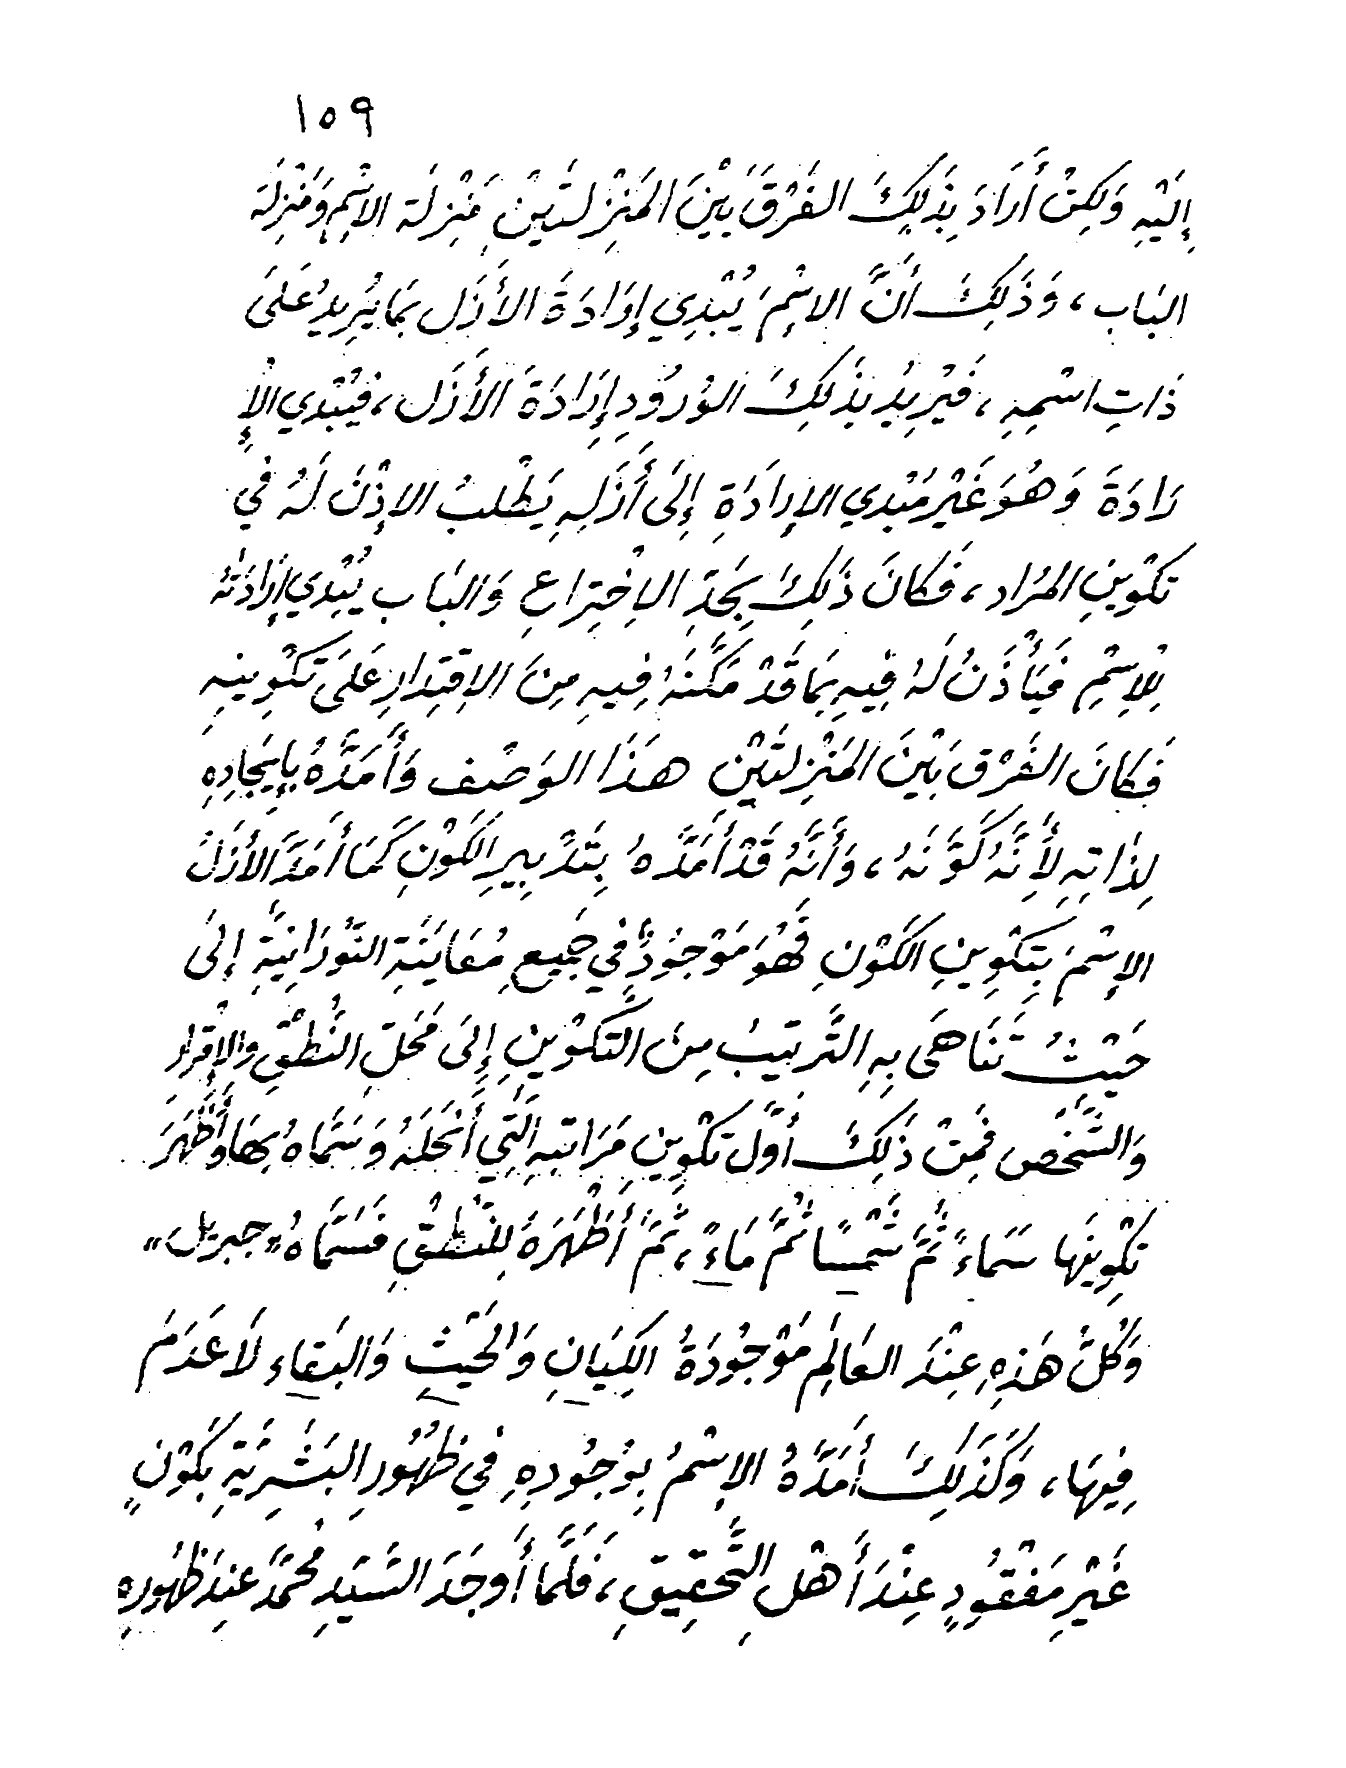 ١٥٩
إِلَيْهِ وَلَكِنْ أَرَادَ بِذَلِكَ الفَرْقَ بَيْنَ المَنْزِلَتَيْنِ مَنْزِلَة الاِسْمِ وَمَنْزِلَة
البَاب ، وَذَلِكَ أَنَّ الاِسْمَ يُبْدِي إِرَادَةَ الأَزَل بِمَا يُرِيدُ عَلَى
ذَاتِ اسْمِهِ ، فَيُرِيدُ بِذَلِكَ الوُرُودِ إِرَادَةَ الأَزَل ، فَيُبْدِي الإِ
رَادَةَ وَهُوَ غَيْر مُبْدِي الإِرَادَةِ إِلَى أَزَلِهِ يَطْلبُ الإِذْنَ لَهُ فِي
تَكْوِينِ المُرَاد ، فَكَانَ ذَلِكَ بِحَدِّ الاِخْتِرَاعِ وَالبَاب يُبْدِي إِرَادَتَهُ
لِلاِسْمِ فَيَأْذَنُ لَهُ فِيهِ بِمَا قَدْ مَكَّنَهُ فِيهِ مِنَ الاِقْتِدَارِ عَلَى تَكْوِينِهِ
فَكَانَ الفَرْق بَيْنَ المَنْزِلَتَيْنِ هَذَا الوَصْف وَأَمَدَّهُ بِإِيجَادِهِ
لِذَاتِهِ لِأَنَّهُ كَوَّنَهُ ، وَأَنَّهُ قَدْ أَمَدَّهُ بِتَدْبِيرِ الكَوْنِ كَمَا أَمَدَّ الأَزَلُ
الاِسْمَ بِتَكْوِينِ الكَوْنِ فَهُوَ مَوْجُودٌ فِي جَمِيعِ مُعَايَنَةِ النُّورَانِيَّةِ إِلَى
حَيْثُ تَنَاهَى بِهِ التَّرتِيبُ مِنَ التَّكْوِينِ إِلَى مَحَلِّ النُّطْقِ وَالإِقْرَار
وَالشَّخْص فَمِنْ ذَلِكَ أَوَّل تَكْوِينِ مَرَاتِبِهِ الَّتِي أَنْحَلَهُ وَسَمَّاهُ بِهَا وَأَظْهَرَ
تَكْوِينَهَا سَمَاءً ثُمَّ شَمْسًا ثُمَّ مَاءً ، ثُمَّ أَظْهَرَهُ لِلنُّطْقِ فَسَمَّاهُ «جبريل»
وَكُلُّ هَذِهِ عِنْدَ العَالَمِ مَوْجُودَةُ الكِيَانِ وَالحَيْثِ وَالبَقَاءِ لَا عَدَمَ
فِيهَا ، وَكَذَلِكَ أَمَدَّهُ الاِسْمُ بِوُجُودِهِ فِي ظُهُورِ البَشَرِيَّةِ بِكَوْنٍ
غَيْرِ مَفْقُودٍ عِنْدَ أَهْلِ التَّحْقِيقِ ، فَلَمَّا أَوجَدَ السَّيِّدِ مُحَمَّد عِندَ ظُهُورِهِ